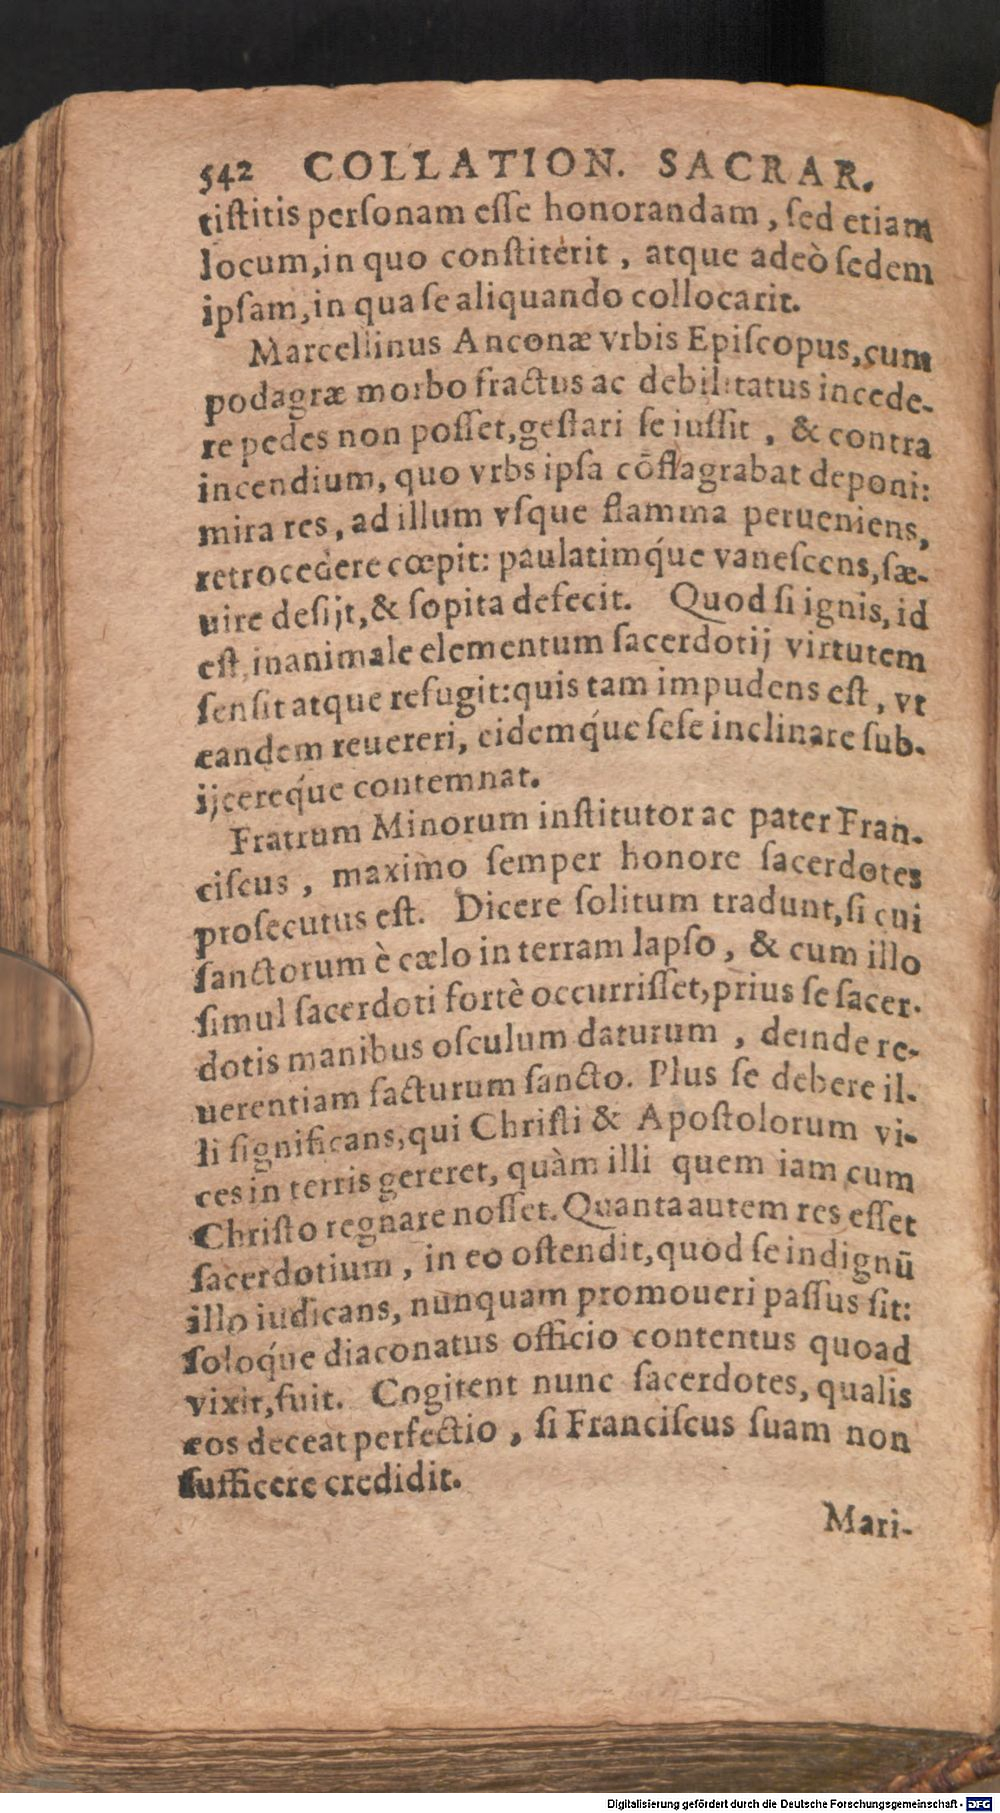 542 COLLATION. SACRAR.
tiſtitis perſonam eſſe honorandam, ſed etiam
locum, in quo conſtiterit, atque adeò ſedem
ipſam, in qua ſe aliquando collocarit.
Marcellinus Anconæ vrbis Epiſcopus, cum
podagræ morbo fractus ac debilitatus incede-
re pedes non poſſet, geſtari ſe iuſſit, & contra
incendium, quo vrbs ipſa cōflagrabat deponi:
mira res, ad illum vſque flamma perueniens,
retrocedere cœpit: paulatimq́ue vaneſcens, ſæ-
uire deſijt, & ſopita defecit. Quod ſi ignis, id
eſt, inanimale elementum ſacerdotij virtutem
ſenſit atque refugit: quis tam impudens eſt, vt
eandem reuereri, eidemq́ue ſeſe inclinare ſub-
ijcereq́ue contemnat.
Fratrum Minorum inſtitutor ac pater Fran-
ciſcus, maximo ſemper honore ſacerdotes
proſecutus eſt. Dicere ſolitum tradunt, ſi cui
ſanctorum è cælo in terram lapſo, & cum illo
ſimul ſacerdoti fortè occurriſſet, prius ſe ſacer-
dotis manibus oſculum daturum, deinde re-
uerentiam facturum ſancto. Plus ſe debere il-
li ſignificans, qui Chriſti & Apoſtolorum vi-
ces in terris gereret, quàm illi quem iam cum
Chriſto regnare noſſet. Quanta autem res eſſet
ſacerdotium, in eo oſtendit, quod ſe indignū
illo iudicans, nunquam promoueri paſſus ſit:
ſoloq́ue diaconatus officio contentus quoad
vixit, fuit. Cogitent nunc ſacerdotes, qualis
eos deceat perfectio, ſi Franciſcus ſuam non
ſufficere credidit.
Mari-
Digitalisierung gefördert durch die Deutsche Forschungsgemeinschaft - DFG